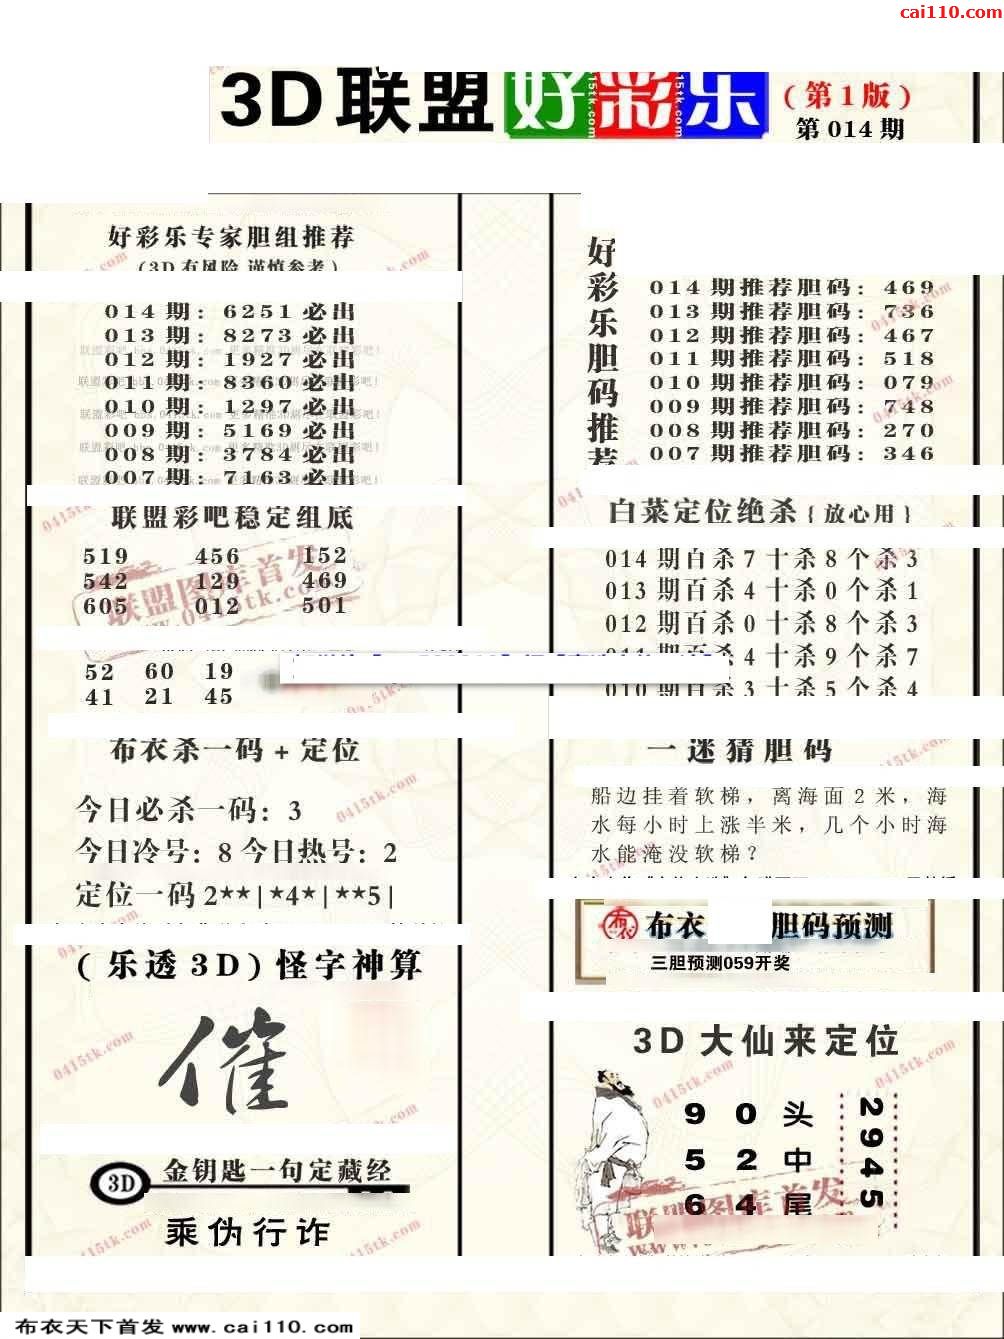 cai110.com
3D联盟好彩乐
(第1版)
第014期
好彩乐专家胆组推荐
(3D有风险 谨慎参考)
014期: 6251必出
013期: 8273必出
012期: 1927必出
011期: 8360必出
010期: 1297必出
009期: 5169必出
008期: 3784必出
007期: 7163必出
联盟彩吧稳定组底
519 456 152
542 129 469
605 012 501
52 60 19
41 21 45
布衣杀一码+定位
今日必杀一码: 3
今日冷号: 8 今日热号: 2
定位一码 2**|*4*|**5|
(乐透3D)怪字神算
催
3D 金钥匙一句定藏经
乘伪行诈
好彩乐胆码推荐
014期推荐胆码: 469
013期推荐胆码: 736
012期推荐胆码: 467
011期推荐胆码: 518
010期推荐胆码: 079
009期推荐胆码: 748
008期推荐胆码: 270
007期推荐胆码: 346
白菜定位绝杀{放心用}
014期百杀7十杀8个杀3
013期百杀4十杀0个杀1
012期百杀0十杀8个杀3
杀4十杀9个杀7
010期百杀3十杀5个杀4
一迷猜胆码
船边挂着软梯，离海面2米，海
水每小时上涨半米，几个小时海
水能淹没软梯？
布衣 布衣 胆码预测
三胆预测059开奖
3D大仙来定位
9 0 头
5 2 中
6 4 尾
2945
联盟图库首发
www.0415tk.com
0415tk.com
布衣天下首发 www.cai110.com